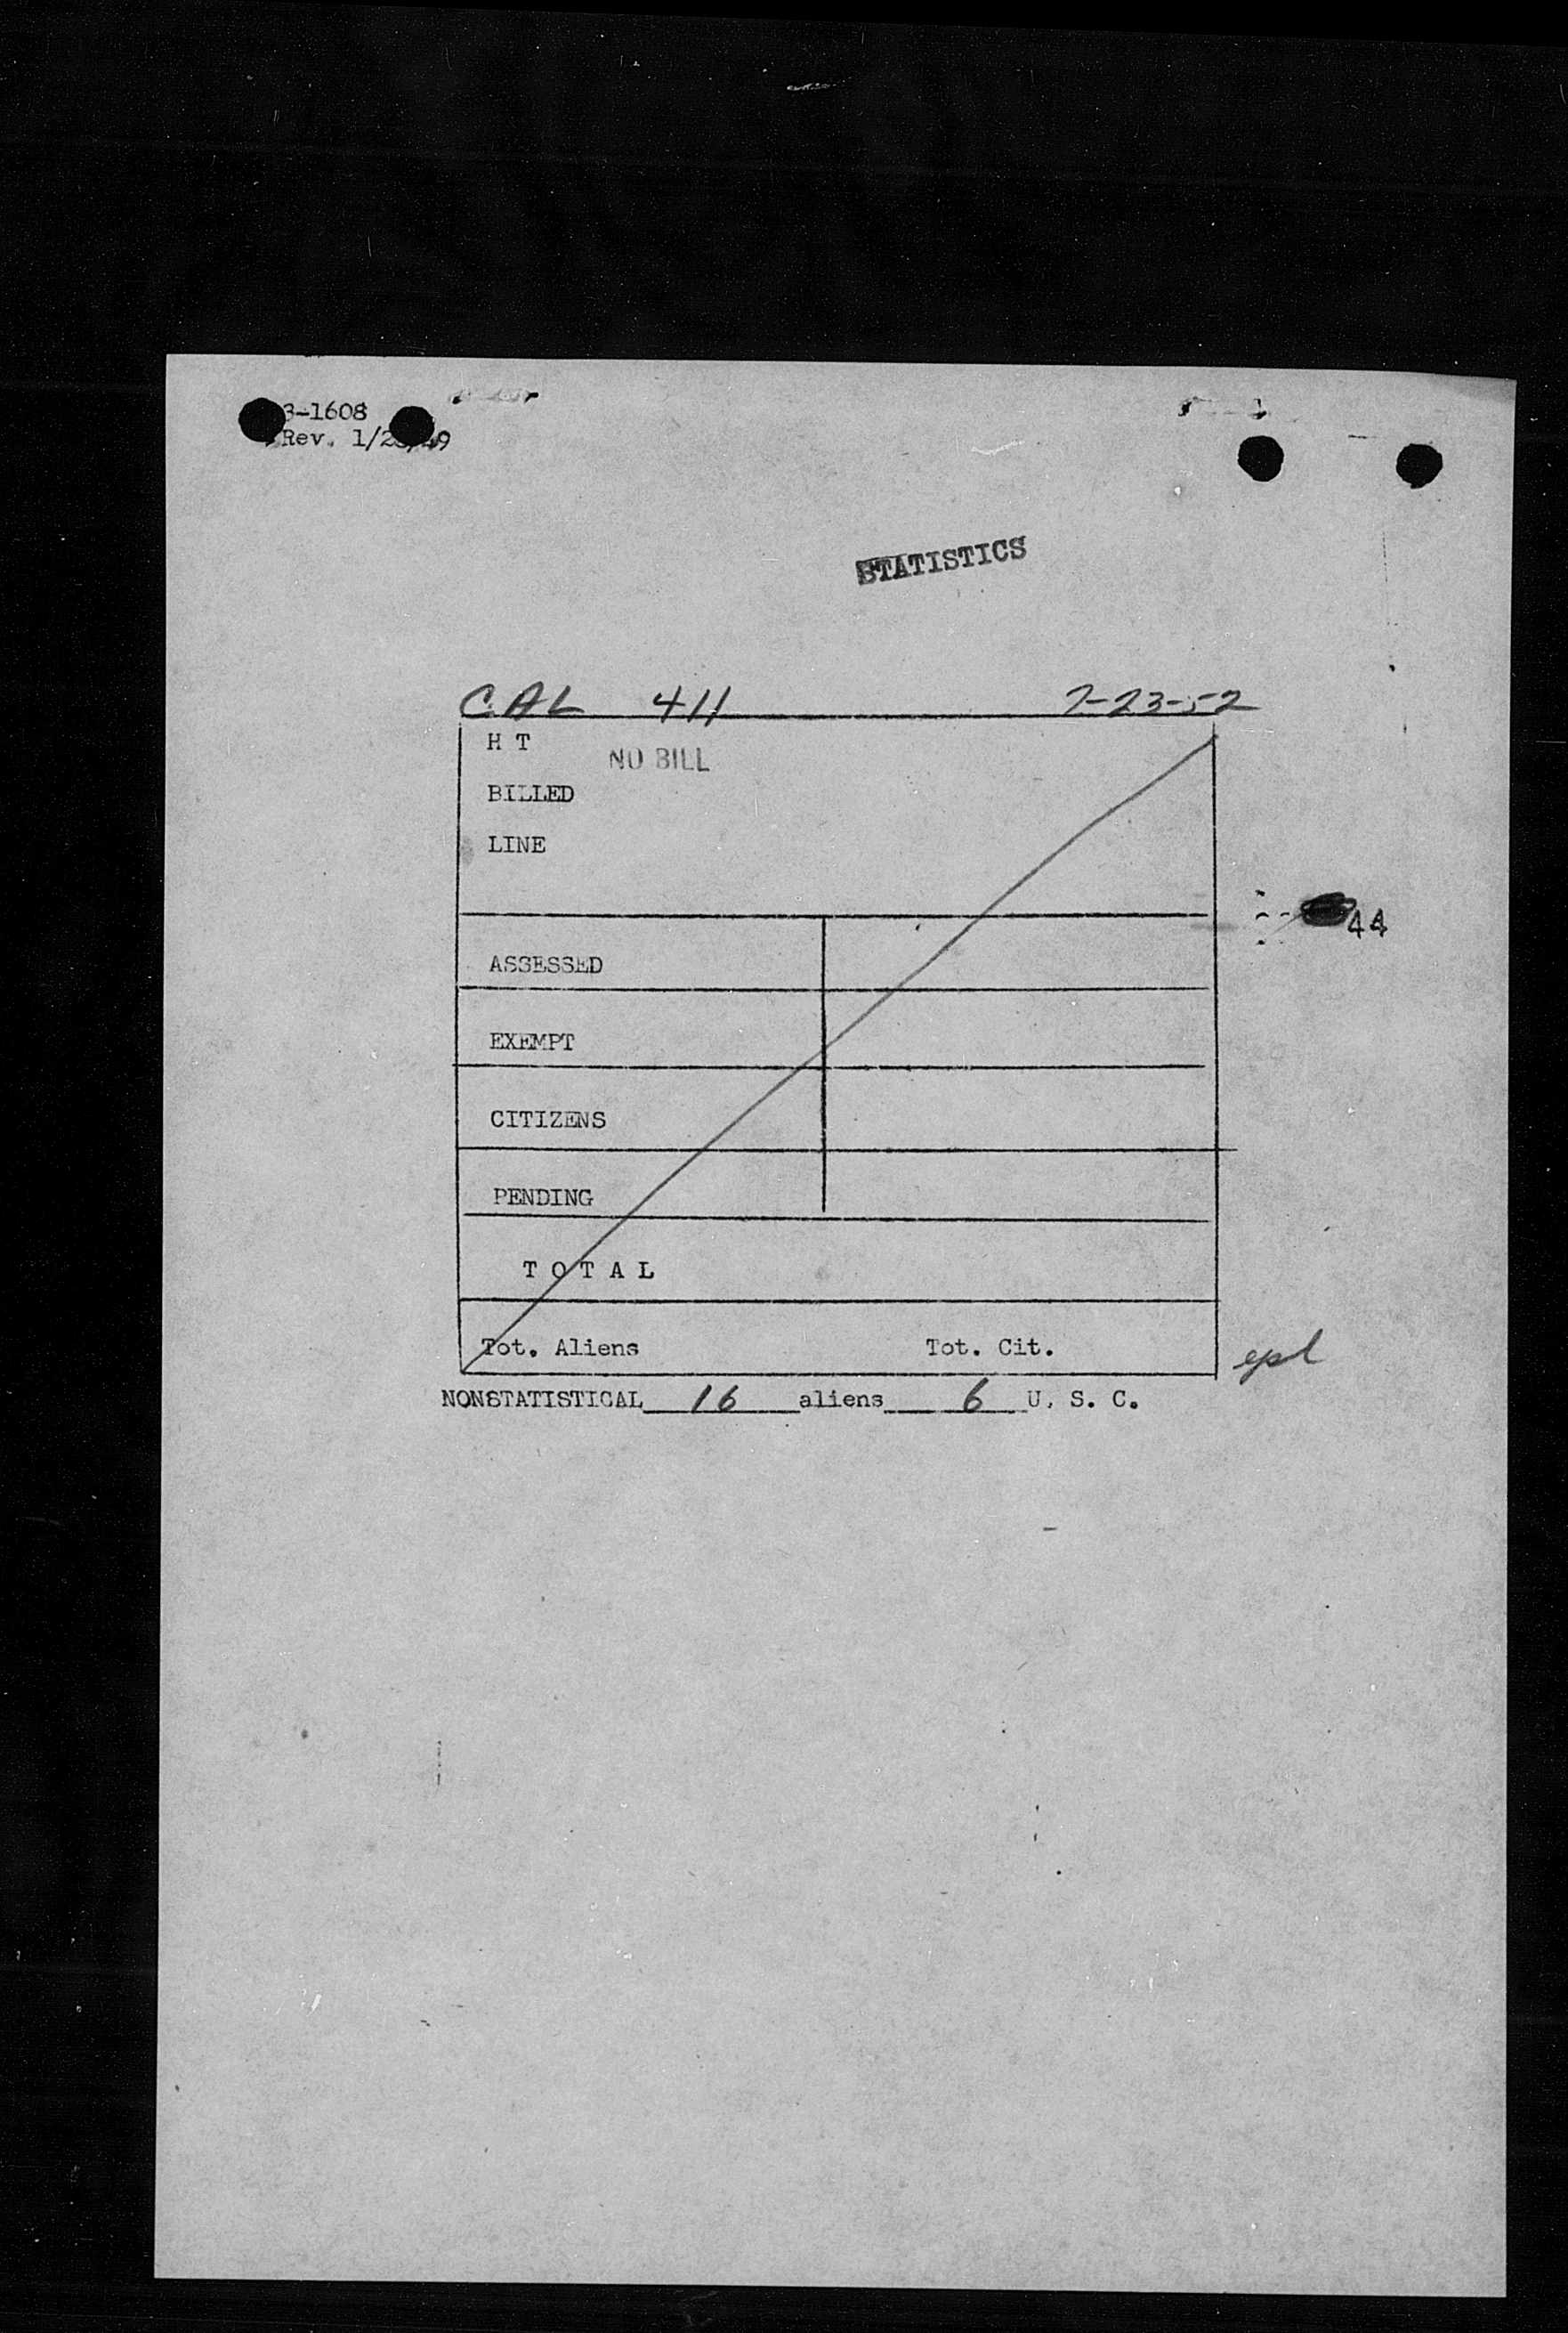 3-1608
Rev. 1/2 49
STATISTICS
CAL 411 7-23-52
H T
NO BILL
BILLED
LINE
44
ASSESSED
EXEMPT
CITIZENS
PENDING
T O T A L
Tot. Aliens Tot. Cit.
NONSTATISTICAL 16 aliens 6 U. S. C.